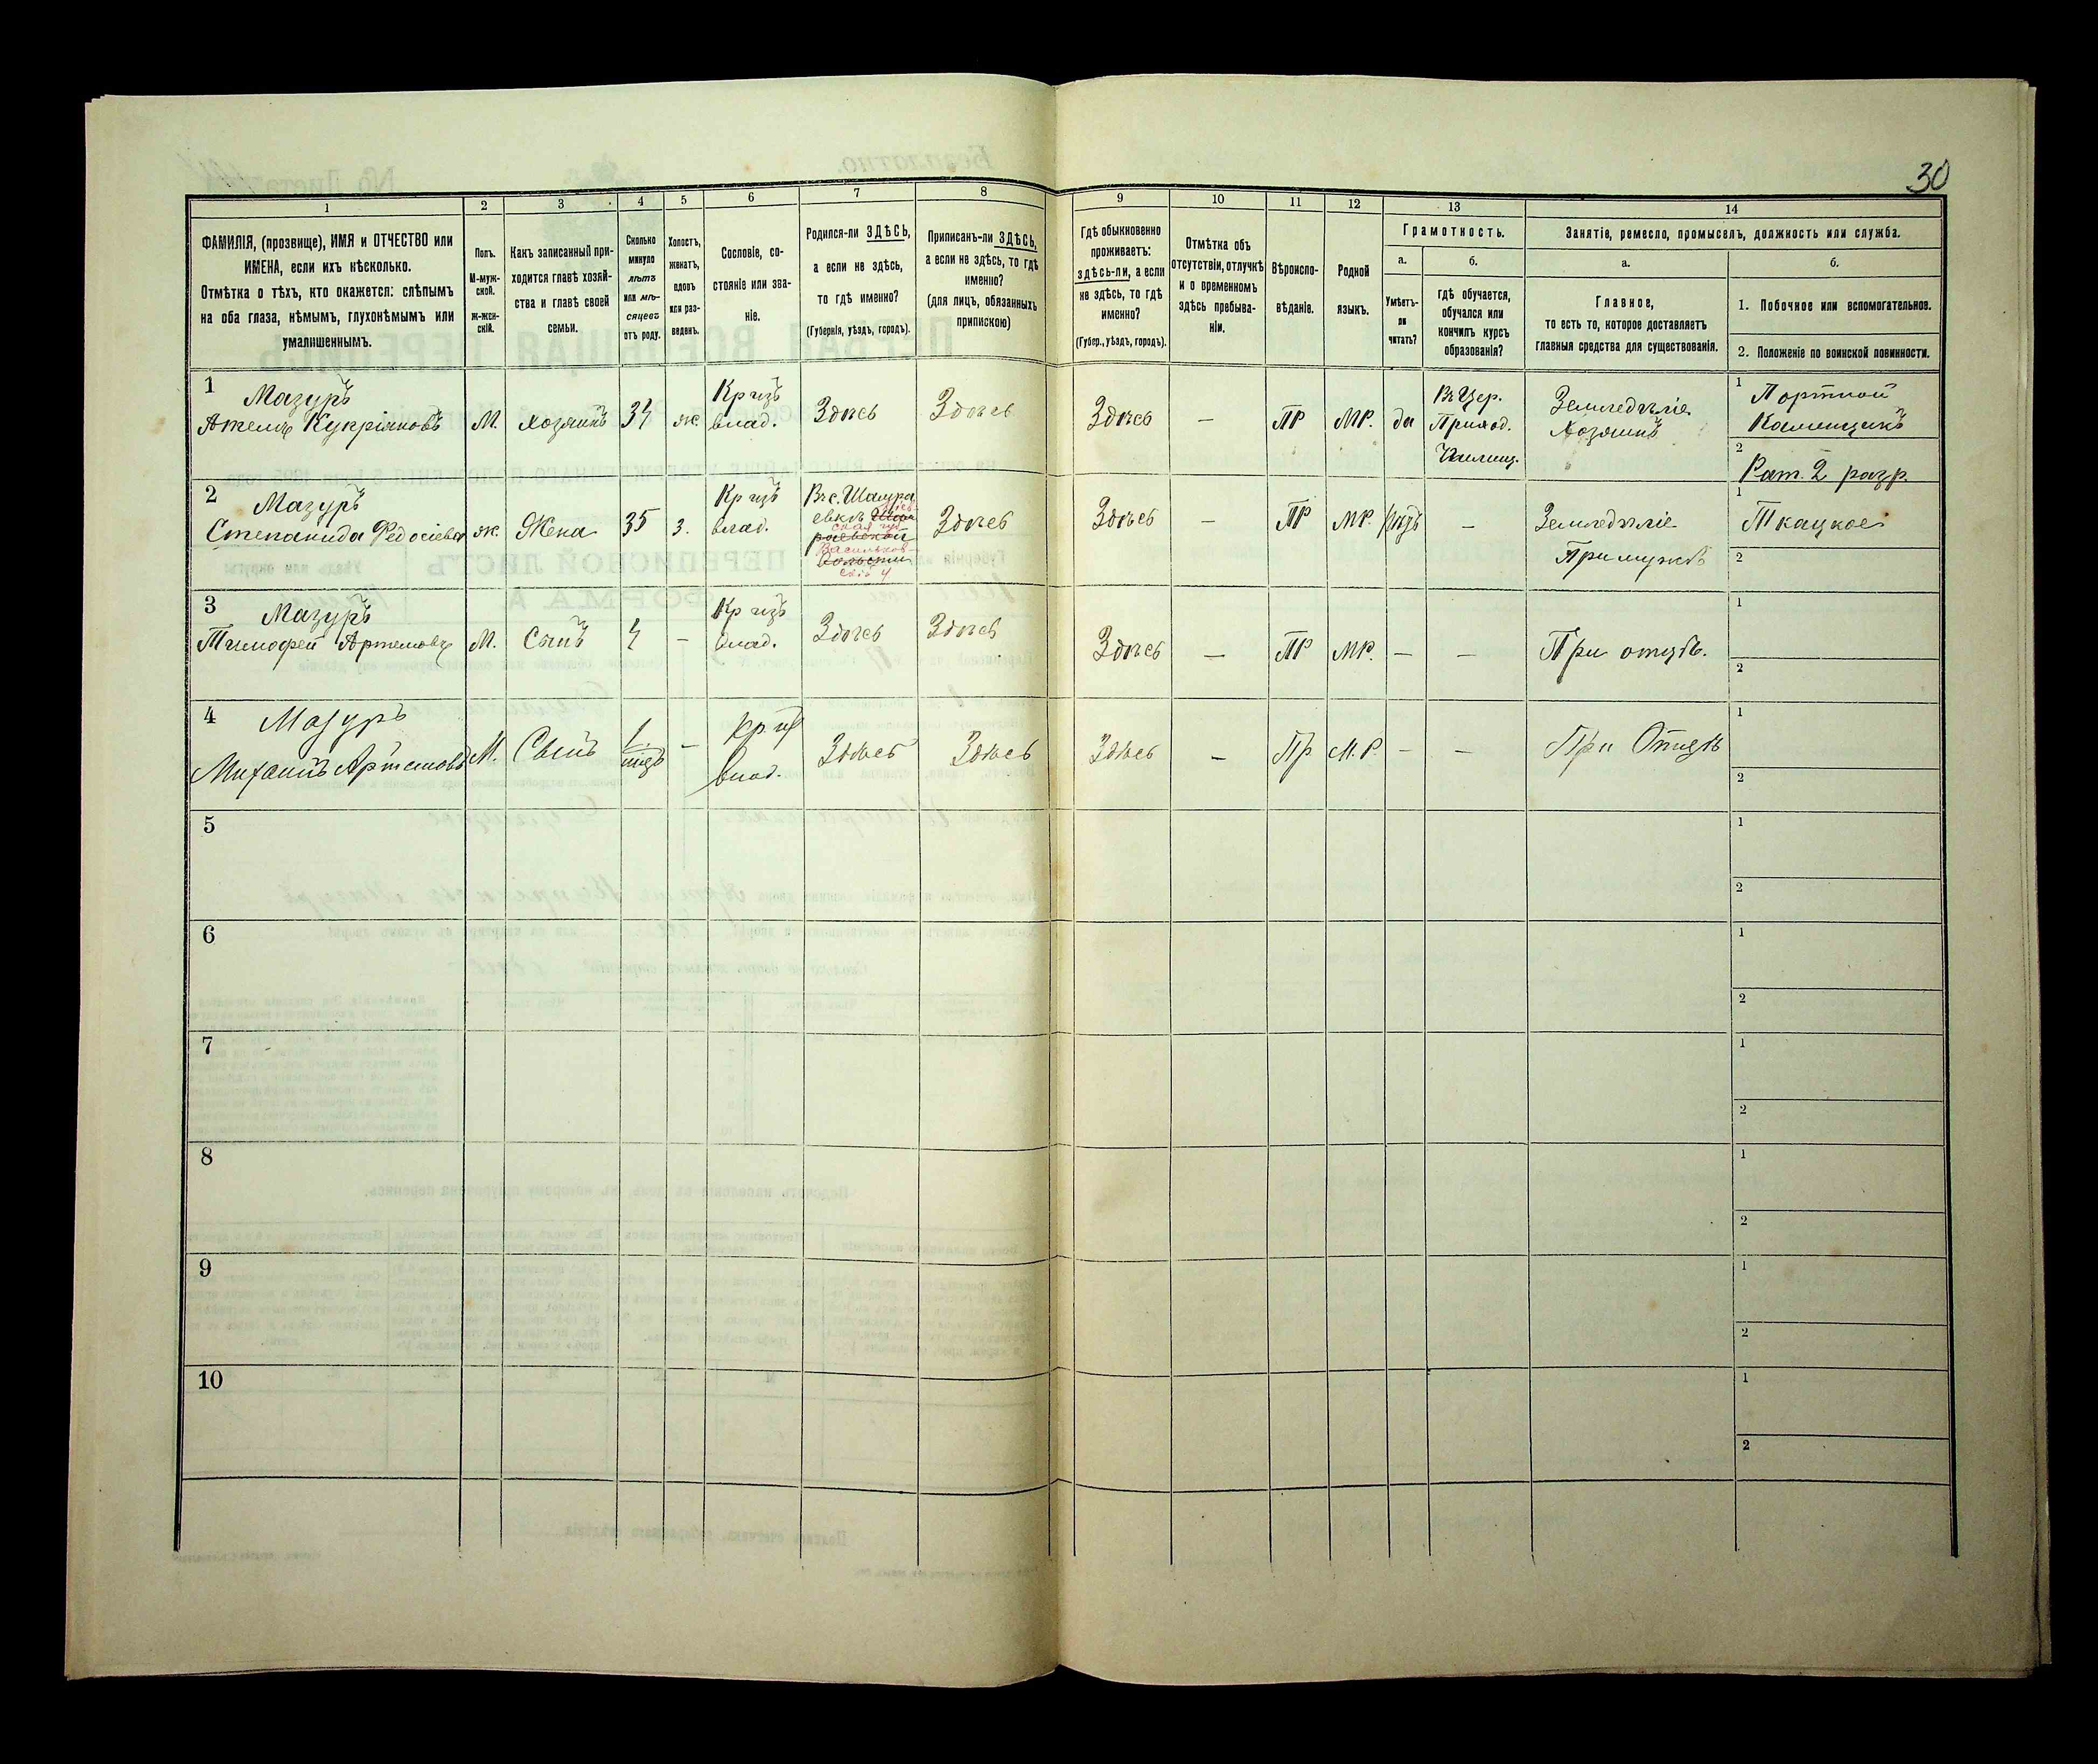 30
1
2
3
4
5
6
7
8
9
10
11
12
13
14
ФАМИЛІЯ, (прозвище), ИМЯ и ОТЧЕСТВО или
ИМЕНА, если ихъ нѣсколько.
Отмѣтка о тѣхъ, кто окажется: слѣпымъ
на оба глаза, нѣмымъ, глухонѣмымъ или
умалишеннымъ.
Полъ.
М-муж-
ской.
ж-жен-
скій.
Какъ записанный при-
ходится главѣ хозяй-
ства и главѣ своей
семьи.
Сколько
минуло
лѣтъ
или мѣ-
сяцевъ
отъ роду.
Холостъ,
женатъ,
вдовъ
или раз-
веденъ.
Сословіе, со-
стояніе или зва-
ніе.
Родился-ли ЗДѢСЬ,
а если не здѣсь,
то гдѣ именно?
(Губернія, уѣздъ, городъ).
Приписанъ-ли ЗДѢСЬ,
а если не здѣсь, то гдѣ
именно?
(для лицъ, обязанныхъ
припискою)
Гдѣ обыкновенно
проживаетъ:
здѣсь-ли, а если
не здѣсь, то гдѣ
именно?
(Губер., уѣздъ, городъ).
Отмѣтка объ
отсутствіи, отлучкѣ
и о временномъ
здѣсь пребыва-
ніи.
Вѣроиспо-
вѣданіе.
Родной
языкъ.
Грамотность.
а.
Умѣетъ-
ли
читать?
б.
гдѣ обучается,
обучался или
кончилъ курсъ
образованія?
Занятіе, ремесло, промыселъ, должность или служба.
а.
Главное,
то есть то, которое доставляетъ
главныя средства для существованія.
б.
1. Побочное или вспомогательное.
2. Положеніе по воинской повинности.
1
Мазуръ
Атемъ Кукріяновъ
М.
хозяинъ
34
ж.
Кр изъ
влад.
Здѣсь
Здѣсь
Здѣсь
—
ПР
МР.
да
Въ Цер.
Приход.
Земледѣліе
Хозяинъ
1
Портной
Каменщикъ
2
Рат. 2 разр.
2
Мазуръ
Степанида Федосіева
ж.
Жена
35
з.
Кр изъ
влад.
Въ с. Шамра
евкѣ
Васильков-
Здѣсь
Здѣсь
—
ПР
МР.
—
Земледѣліе
При мужѣ
1
Ткацкое
2
3
Мазуръ
Тимофей Артемовъ
М.
Сынъ
4
—
Кр изъ
влад.
Здѣсь
Здѣсь
Здѣсь
—
ПР
МР.
—
—
При отцѣ.
1
2
4
Мазуръ
Михаилъ Артемовъ
М.
Сынъ
1
—
влад.
Здѣсь
Здѣсь
Здѣсь
—
Пр
М.Р.
—
—
При Отцѣ
1
2
5
1
2
6
1
2
7
1
2
8
1
2
9
1
2
10
1
2